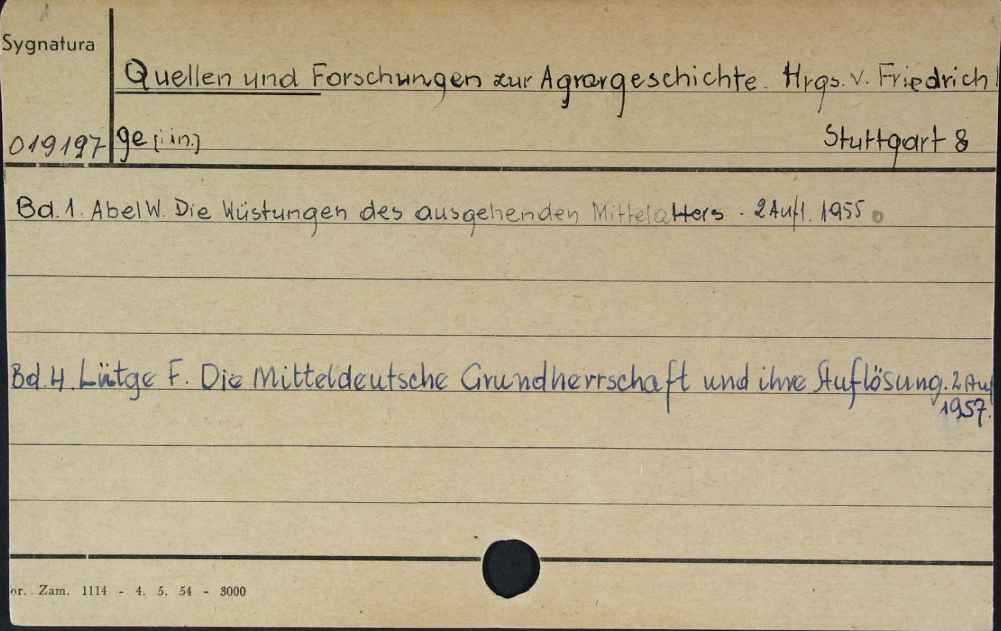 Sygnatura
Quellen und Forschungen zur Agrargeschichte. Hrgs. v. Friedrich
019197 ge [i in.] Stuttgart 8
Bd. 1. Abel W. Die Wüstungen des ausgehenden Mittelalters. 2 Aufl. 1955
Bd. 4. Lütge F. Die Mitteldeutsche Grundherrschaft und ihre Auflösung. 2 Auf
1957.
or. Zam. 1114 - 4. 5. 54 - 3000